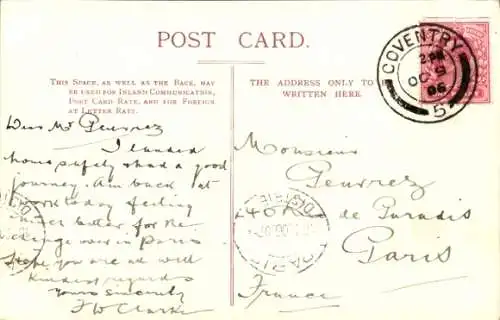 POST CARD.
THIS SPACE, AS WELL AS THE BACK, MAY
BE USED FOR INLAND COMMUNICATION,
POST CARD RATE, AND FOR FOREIGN
AT LETTER RATE.
THE ADDRESS ONLY TO
WRITTEN HERE.
COVENTRY
OC 9
06
5
Dear Mr Peurrez
I landed
home safely & had a good
journey. Am back at
work today feeling
better for the
change over in Paris
Hope you are all well
Kindest regards
Yours sincerely
F W Clarke
Monsieur
Peurrez
40 Rue de Paradis
Paris
France